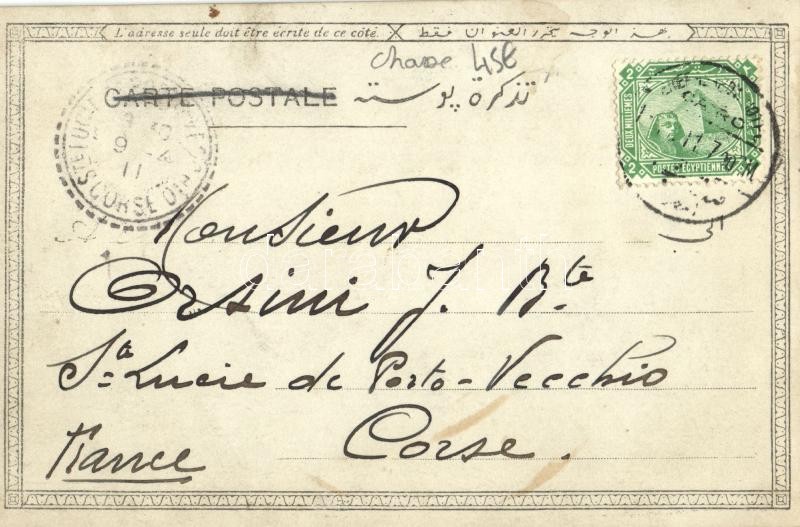 L'adresse seule doit être écrite de ce côté.
هذا الوجه يحرر العنوان فقط
Chasse 45€
CARTE POSTALE
تذكرة بوسته
2 2
DEUX MILLIEMES
POSTES EGYPTIENNES
CORSE
9
11
Monsieur
Orsini J. Bte
Sta Lucie de Porto-Vecchio
Corse.
France
darabanth